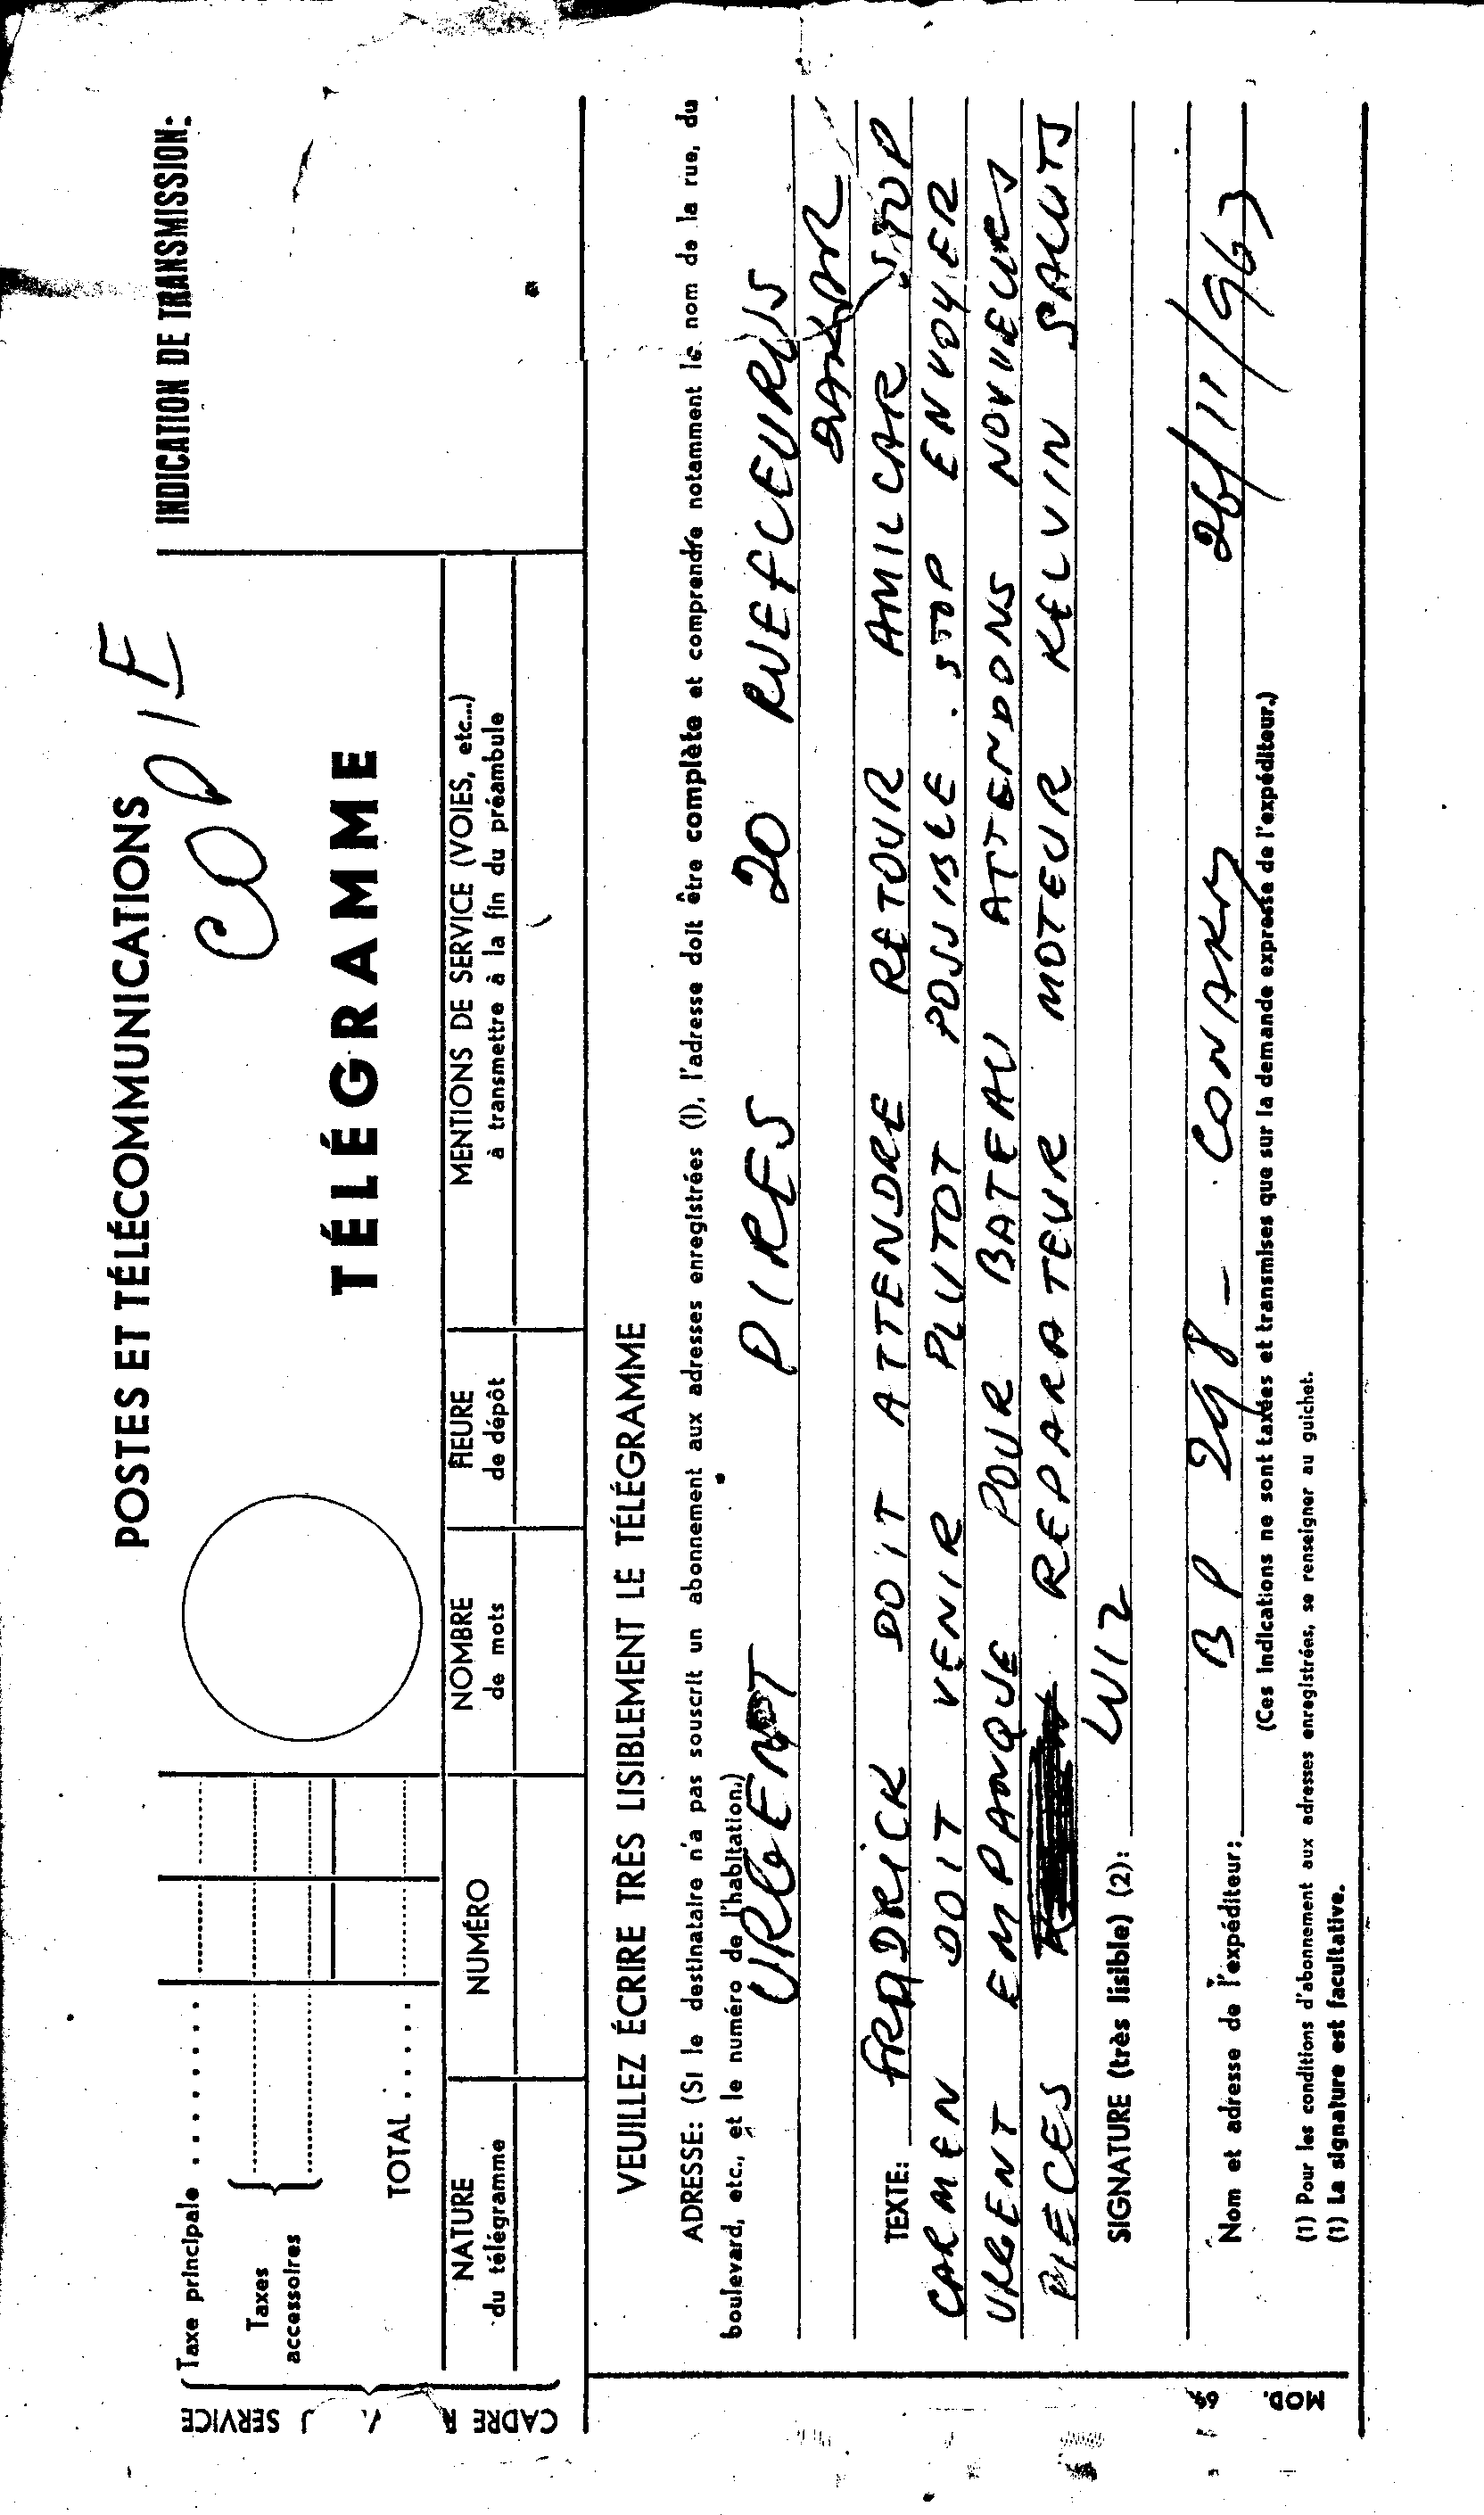 POSTES ET TÉLÉCOMMUNICATIONS
INDICATION DE TRANSMISSION:
COPIE
TÉLÉGRAMME
Taxe principale . . . . . . .
Taxes
accessoires
TOTAL . . . .
CADRE SERVICE
NATURE
du télégramme
NUMÉRO
NOMBRE
de mots
HEURE
de dépôt
MENTIONS DE SERVICE (VOIES, etc...)
à transmettre à la fin du préambule
VEUILLEZ ÉCRIRE TRÈS LISIBLEMENT LE TÉLÉGRAMME
ADRESSE: (Si le destinataire n'a pas souscrit un abonnement aux adresses enregistrées (1), l'adresse doit être complète et comprendre notamment le nom de la rue, du
boulevard, etc., et le numéro de l'habitation.)
URGENT PIRES 20 RUEFLEURUS
DAKAR
TEXTE: FRADRICK DOIT ATTENDRE RETOUR AMILCAR STOP
CARMEN DOIT VENIR PLUTOT POSSIBLE . STOP ENVOYER
URGENT EMPANQUE POUR BATEAU ATTENDONS NOVVEURS
PIECES REPARATEUR MOTEUR KELVIN SALUTS
SIGNATURE (très lisible) (2): LUIZ
Nom et adresse de l'expéditeur: B P 298 - CONAKRY 26/11/963
(Ces indications ne sont taxées et transmises que sur la demande expresse de l'expéditeur.)
(1) Pour les conditions d'abonnement aux adresses enregistrées, se renseigner au guichet.
(1) La signature est facultative.
MOD. 69